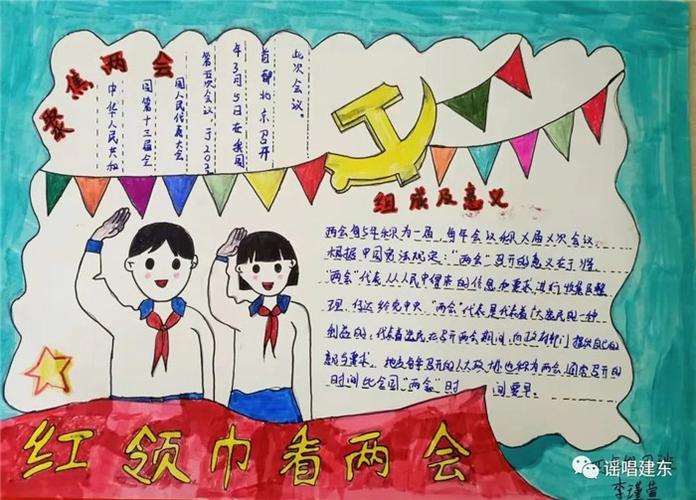 聚焦两会
中华人民共和
国第十三届全
国人民代表大会
第五次会议于202
年3月5日在我国
首都北京召开
此次会议。
组成及意义
两会每5年称为一届,每年会议称X届X次会议。
根据中国宪法规定:“两会”召开的意义在于:将
“两会”代表从人民中得来的信息和要求进行收集及整
理,传达给党中央,“两会”代表是代表着广大选民的一种
利益的,代表着选民在召开两会期间,向政府部门提出自己的
意见与要求。地方每年召开的人大政协也称为两会,通常召开的
时间比全国“两会”时间要早。
红领巾看两会
李瑾萱
谣唱建东